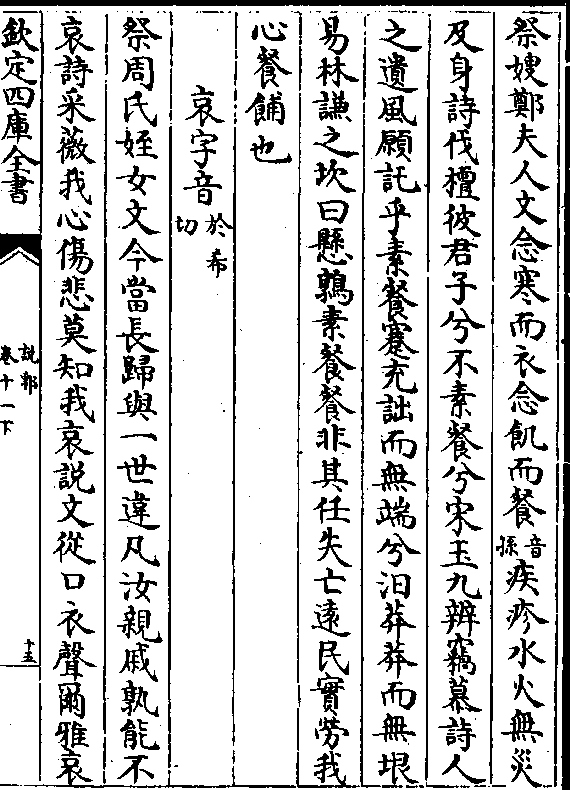 祭嫂鄭夫人文念寒而衣念飢而餐音孫疾疹水火無災
及身詩伐檀彼君子兮不素餐兮宋玉九辨竊慕詩人
之遺風願託乎素餐蹇充詘而無端兮汨莽莽而無垠
易林謙之坎曰懸鶉素餐餐非其任失亡遠民實勞我
心餐餔也
哀字音於希切
祭周氏姪女文今當長歸與一世違凡汝親戚孰能不
哀詩采薇我心傷悲莫知我哀說文從口衣聲爾雅哀
欽定四庫全書
說郛
卷十一下
十五